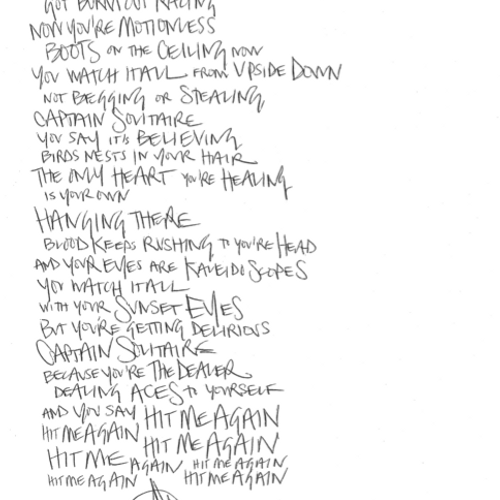 GOT BURNT OUT RACING
NOW YOU'RE MOTIONLESS
BOOTS ON THE CEILING NOW
YOU WATCH IT ALL FROM UPSIDE DOWN
NOT BEGGING OR STEALING
CAPTAIN SOLITAIRE
YOU SAY IT'S BELIEVING
BIRDS NESTS IN YOUR HAIR
THE ONLY HEART YOU'RE HEALING
IS YOUR OWN
HANGING THERE
BLOOD KEEPS RUSHING TO YOU'RE HEAD
AND YOUR EYES ARE KALEIDOSCOPES
YOU WATCH IT ALL
WITH YOUR SUNSET EYES
BUT YOU'RE GETTING DELIRIOUS
CAPTAIN SOLITAIRE
BECAUSE YOU'RE THE DEALER
DEALING ACES TO YOURSELF
AND YOU SAY HIT ME AGAIN
HIT ME AGAIN HIT ME AGAIN
HIT ME AGAIN HIT ME AGAIN
HIT ME AGAIN HIT ME AGAIN